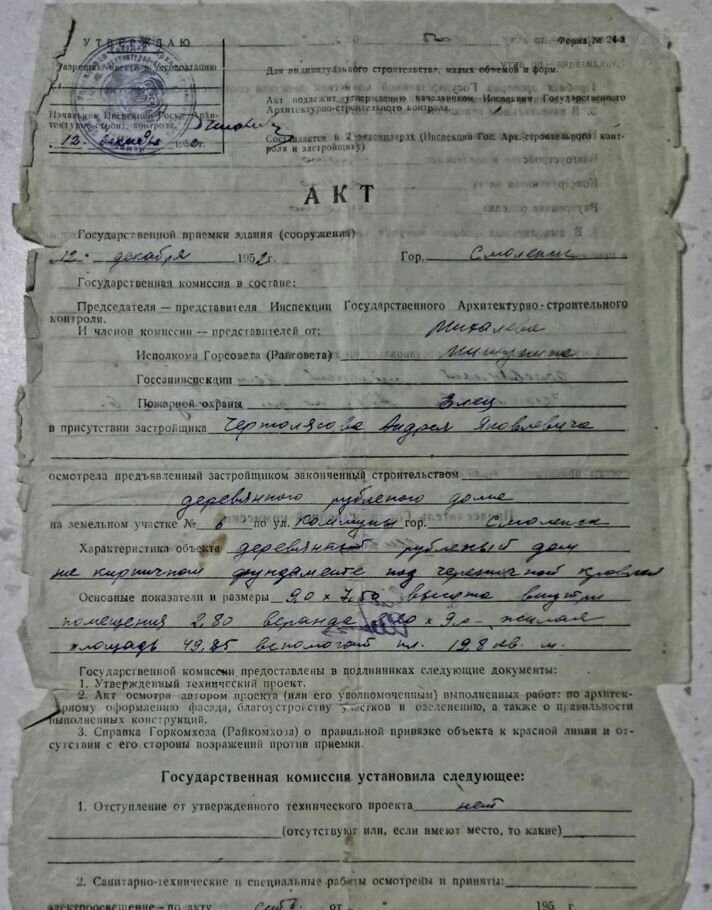 УТВЕРЖДАЮ
Форма № 24-а
Разрешаю ввести в эксплоатацию
Для индивидуального строительства, малых объемов и форм.
Начальник Инспекции Госуд. Архи-
тектурно-строит. контроля
Акт подлежит утверждению начальником Инспекции Государственного
Архитектурно-строительного контроля.
12. декабря 1952г.
Составляется в 2 экземплярах (Инспекции Гос. Арх.-строительного конт-
роля и застройщику).
АКТ
Государственной приемки здания (сооружения)
12. декабря 1952г. Гор. Смоленск
Государственная комиссия в составе:
Председателя — представителя Инспекции Государственного Архитектурно-строительного
контроля. Михалева
И членов комиссии — представителей от:
Исполкома Горсовета (Райсовета)
Госсанинспекции
Пожарной охраны Елец
в присутствии застройщика Чертолясова Андрея Яковлевича
осмотрела предъявленный застройщиком законченный строительством
деревянного рубленого дома
на земельном участке № 6 по ул. Коммуны гор. Смоленск
Характеристика объекта деревянный рубленый дом
на кирпичном фундаменте под черепичной кровлей
Основные показатели и размеры 9,0 х 7,50 высота внутри
помещения 2.80 веранда х 9,0 - жилая
площадь 49,85 вспомогат пл. 19,8 кв. м.
Государственной комиссии предоставлены в подлинниках следующие документы:
1. Утвержденный технический проект.
2. Акт осмотра автором проекта (или его уполномоченным) выполненных работ: по архитек-
турному оформлению фасада, благоустройству участков и озеленению, а также о правильности
выполненных конструкций.
3. Справка Горкомхоза (Райкомхоза) о правильной привязке объекта к красной линии и от-
сутствии с его стороны возражений против приемки.
Государственная комиссия установила следующее:
1. Отступление от утвержденного технического проекта нет
(отсутствуют или, если имеют место, то какие)
2. Санитарно-технические и специальные работы осмотрены и приняты:
электроосвещение — по акту от " 195 г.